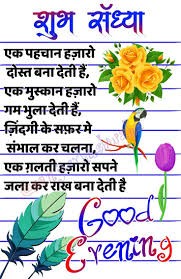 शुभ संध्या
एक पहचान हज़ारो
दोस्त बना देती हैं,
एक मुस्कान हज़ारो
गम भुला देती हैं,
ज़िंदगी के सफ़र मे
संभाल कर चलना,
एक ग़लती हज़ारो सपने
जला कर राख बना देती है
Good
Evening